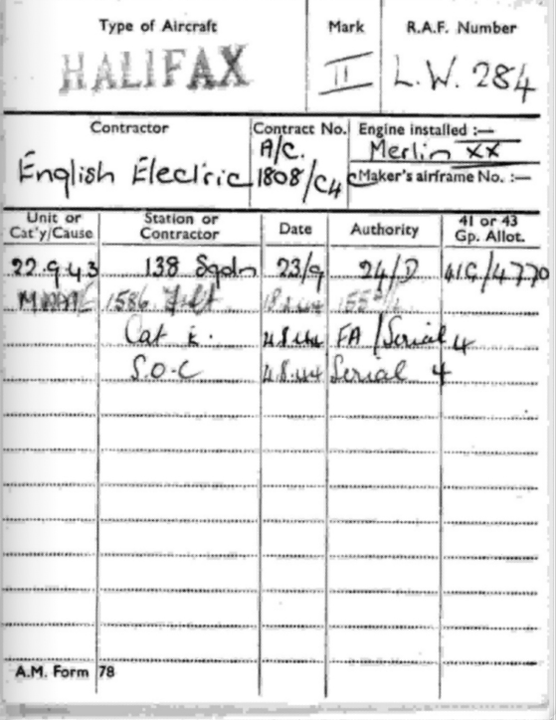 Type of Aircraft Mark R.A.F. Number
HALIFAX II L.W. 284
Contractor Contract No. Engine installed :—
A/C. Merlin XX
English Electric 1808/C4C Maker's airframe No. :—
Unit or Cat'y/Cause Station or Contractor Date Authority 41 or 43 Gp. Allot.
22.9.43 138 Sqdn 23/9 24/D 41G/4770
1586 Flt
Cat E. 4.8.44 FA/Serial 4
S.O.C 4.8.44 Serial 4
A.M. Form 78